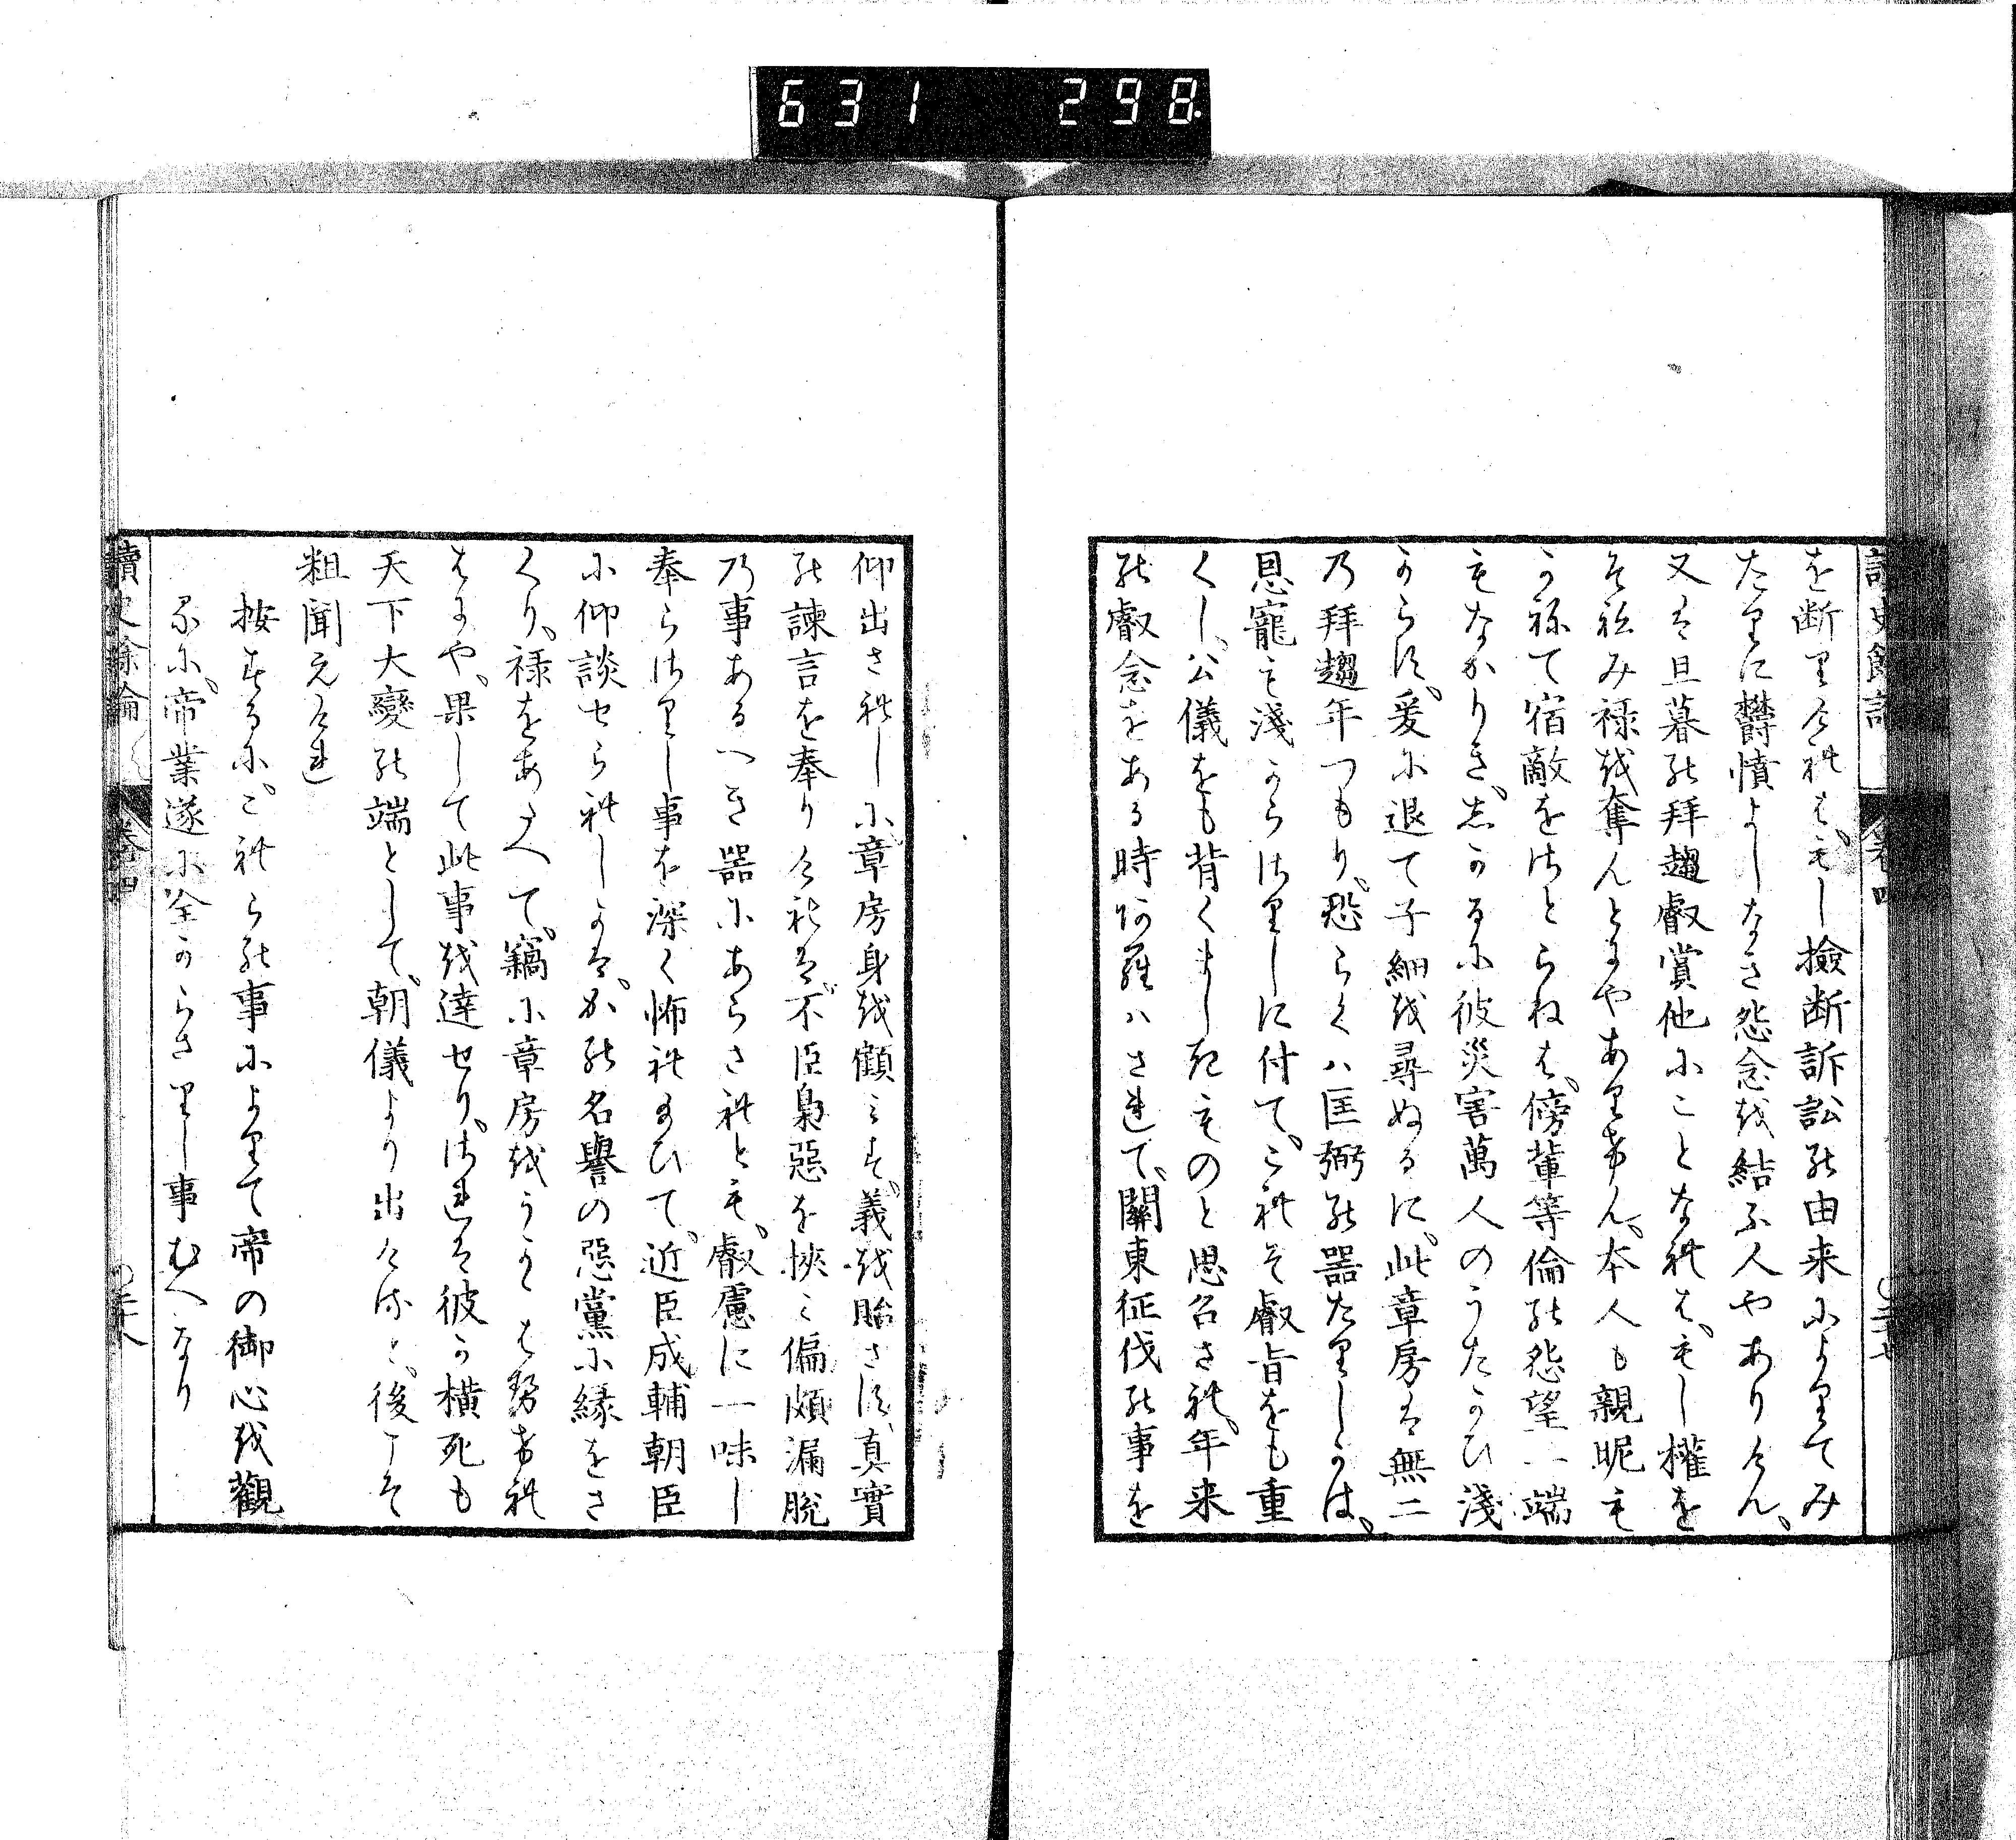 631 298
を断りけれは、もし撿断訴訟の由来によりてみ
たりに欝憤よしなき怨念を結ふ人やありけん、
又は旦暮の拜趨叡賞他にことなれは、もし權を
そねみ禄を奪んとにやありけん、本人も親昵も
かねて宿敵をさとらねは、傍輩等倫の怨望一端
もなかりき、志かるに彼災害萬人のうたかひ淺
からす、爰に退て子細を尋ぬるに、此章房は無二
乃拜趨年つもり、恐らくハ匡弼の器たりしかは、
恩寵も淺からさりしに付て、これそ叡旨をも重
くし、公儀をも背くましきものと思召され、年来
の叡念をある時阿羅ハされて、關東征伐の事を
仰出されしに、章房身を顧みす、義を貽さす、真實
の諫言を奉りけれは、不臣梟惡を挾み偏頗漏脱
乃事あるへき器にあらされとも、叡慮に一味し
奉らさりし事を深く怖れ給ひて、近臣成輔朝臣
に仰談せられしかは、かの名譽の惡黨に縁をさ
くり、禄をあたへて、竊に章房をうかゝは勢劵れ
はにや、果して此事を達せり、されは彼か横死も
天下大變の端として、朝儀より出けると、後にそ
粗聞えける
按するに、これらの事によりて帝の御心を觀
るに、帝業遂に全からさりし事むへなり
讀史餘論 卷四